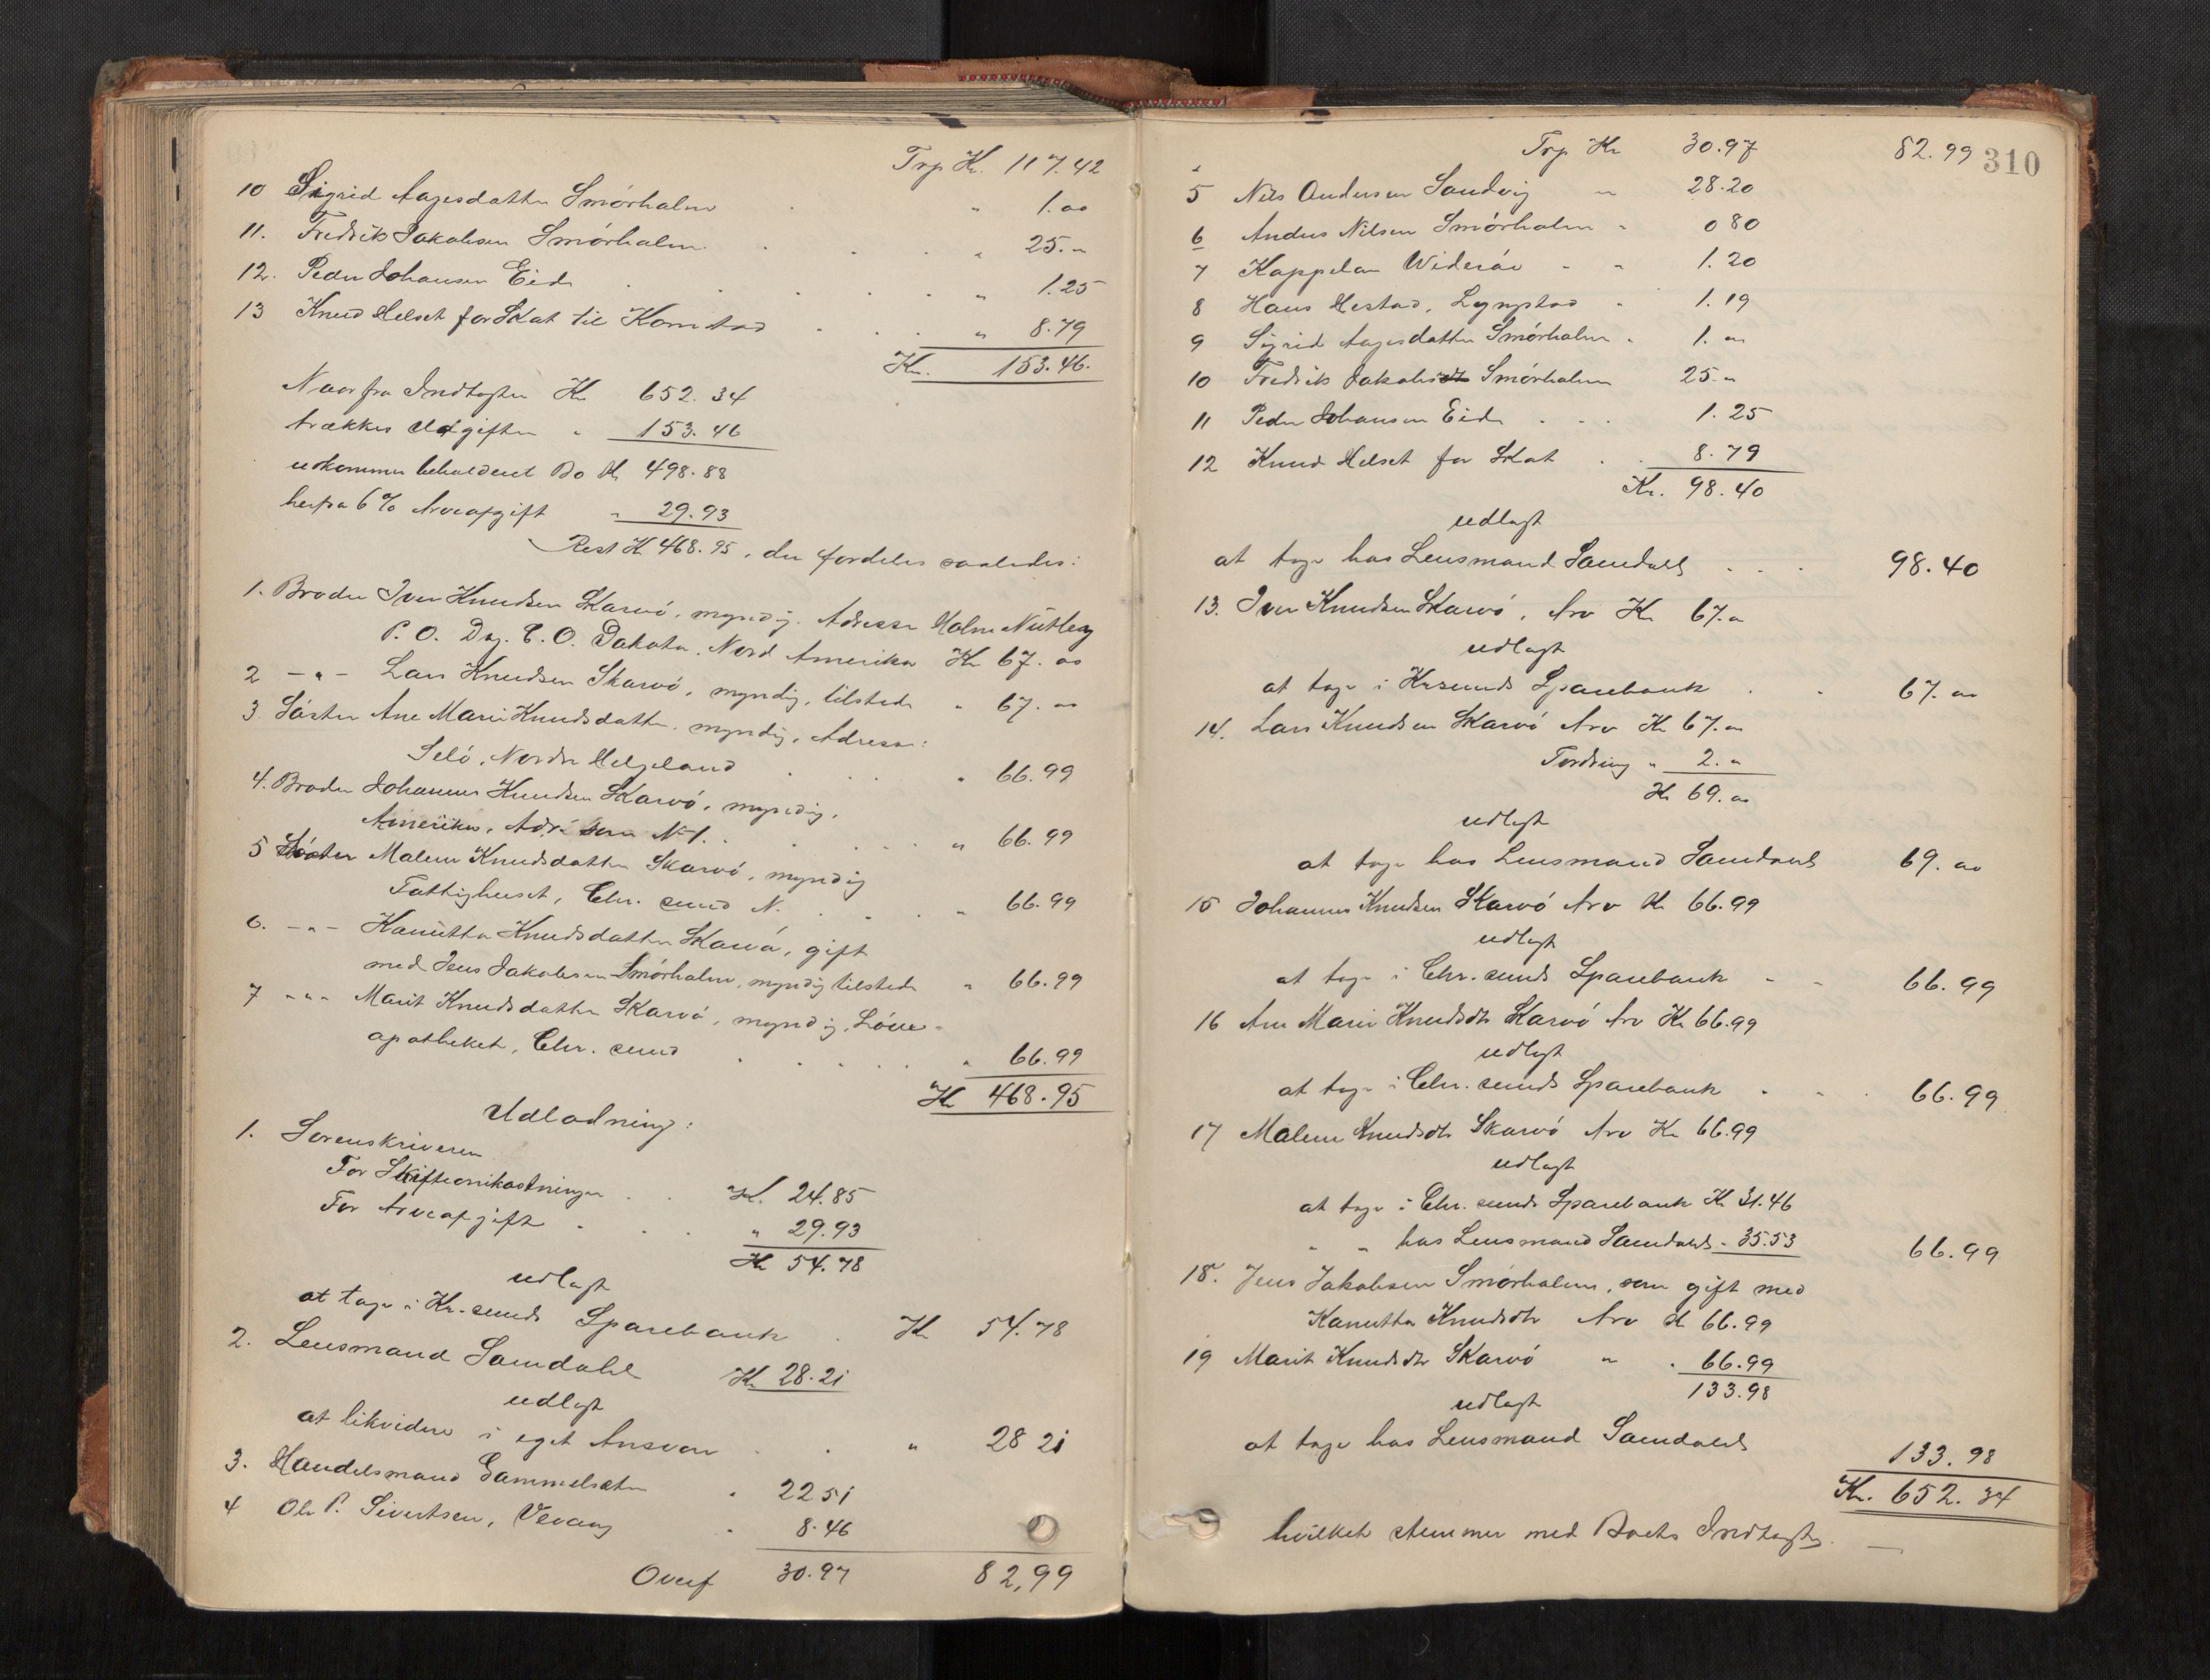 Trp Kr. 117.42
10 Sigrid Aagesdatter Smørholm " 1.00
11. Fredrik Jakobsen Smørholm " 25.-
12. Peder Johansen Eide " 1.25
13 Knud Helset for Skat til Kornstad " 8.79
Kr. 153.46.
Naar fra Indtægten Kr 652.34
trækkes Udgiften " 153.46
udkommer beholdent Bo Kr 498.88
herfra 6 % Arveafgift " 29.93
Rest Kr 468.95, der fordeles saaledes:
1. Broder Iver Knudsen Skarvø, myndig. Adresse Holm Nütley
P. O. Day. C. O. Dakota. Nord Amerika Kr 67.00
2 - " - Lars Knudsen Skarvø, myndig, tilstede " 67.00
3 Søster Ane Marie Knudsdatter, myndig, Adresse:
Selø, Nordre Helgeland " 66.99
4. Broder Johannes Knudsen Skarvø, myndig,
Amerika, Adr. som N 1. " 66.99
5 Søster Malene Knudsdatter Skarvø, myndig
Fattighuset, Chr. sund N. " 66.99
6. - " - Kanutta Knudsdatter Skarvø, gift
med Jens Jakobsen Smørholm, myndig tilstede " 66.99
7 - " - Marit Knudsdatter Skarvø, myndig, Løve-
apotheket, Chr. sund " 66.99
Kr 468.95
Udlodning:
1. Sorenskriveren
For Skifteomkostninger Kr. 24.85
For Arveafgift " 29.93
Kr 54.78
udlagt
at tage i Kr.sunds Sparebank Kr 54.78
2. Lensmand Samdahl Kr 28.21
udlagt
at likvidere i eget Ansvar " 28 21
3. Handelsmand Gammelsæter " 22 51
4 Ole P. Sivertsen, Vevang " 8.46
Overf 30.97 82,99
Trp Kr 30.97 82.99 310
5 Nils Andersen Sandvig " 28.20
6 Anders Nilsen Smørholm " 0 80
7 Kappelan Widerøe " " 1.20
8 Hans Hestad, Lyngstad " 1.19
9 Sigrid Aagesdatter Smørholm " 1.00
10 Fredrik Jakobsdt Smørholm 25.-
11 Peder Johansen Eide 1.25
12 Knud Helset for Skat 8.79
Kr. 98.40
udlagt
at tage hos Lensmand Samdahl 98.40
13. Iver Knudsen Skarvø, Arv Kr 67.-
udlagt
at tage i Krsunds Sparebank 67.00
14. Lars Knudsen Skarvø Arv Kr 67.-
Fordring " 2.-
Kr 69.00
udlagt
at tage hos Lensmand Samdahl 69.00
15 Johannes Knudsen Skarvø Arv Kr 66.99
udlagt
at tage i Chr. sunds Sparebank 66.99
16 Ane Marie Knudsdtr Skarvø Arv Kr 66.99
udlagt
at tage i Chr. sunds Sparebank 66.99
17 Malene Knudsdtr Skarvø Arv Kr 66.99
udlagt
at tage i Chr. sunds Sparebank Kr 31.46
" " hos Lensmand Samdahl " 35.53 66.99
18. Jens Jakobsen Smørholm, som gift med
Kanutta Knudsdtr Arv Kr 66.99
19 Marit Knudsdtr Skarvø " " 66.99
133.98
udlagt
at tage hos Lensmand Samdahl 133.98
Kr. 652.34
hvilket stemmer med Boets Indtægter.